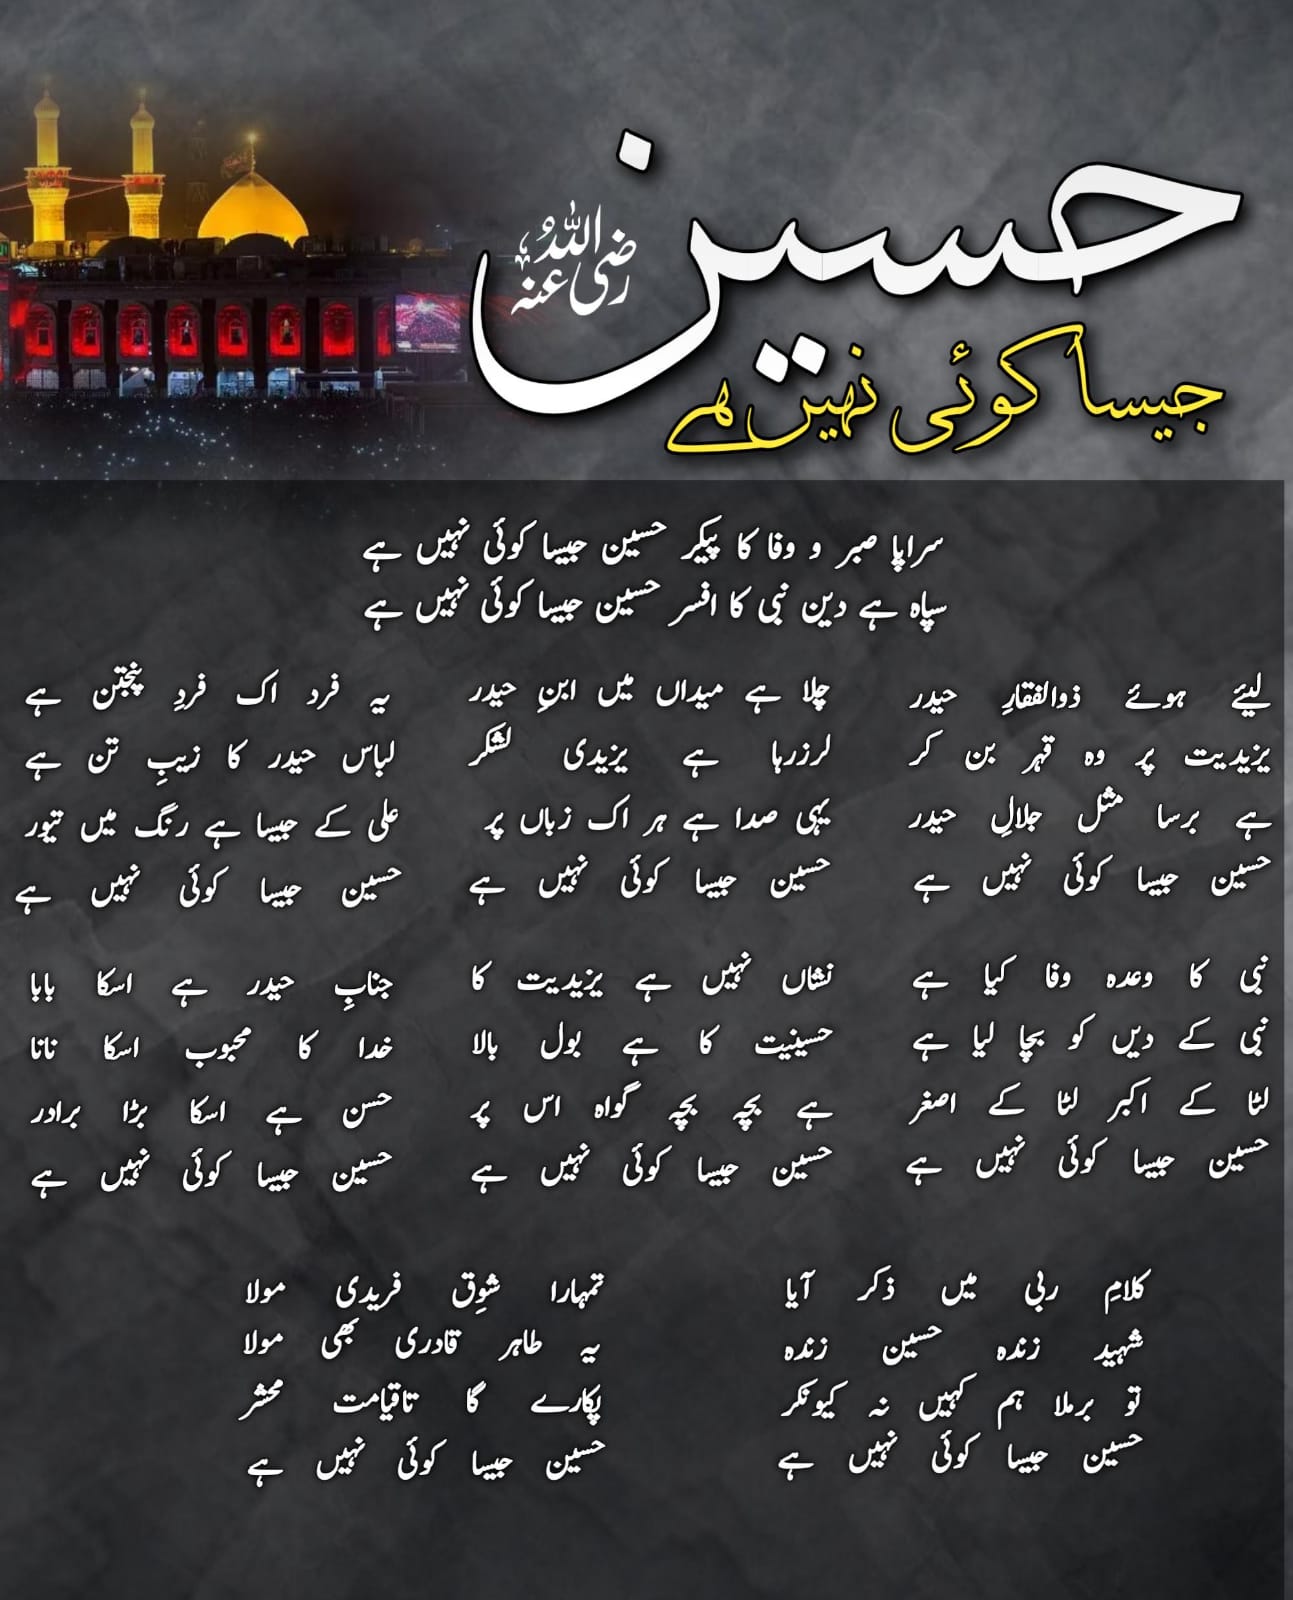 حسین
رضی اللہ عنہ
جیسا کوئی نہیں ہے
سراپا صبر و وفا کا پیکر حسین جیسا کوئی نہیں ہے
سپاہ ہے دین نبی کا افسر حسین جیسا کوئی نہیں ہے
لیئے ہوئے ذوالفقارِ حیدر
یزیدیت پر وہ قہر بن کر
ہے برسا مثل جلالِ حیدر
حسین جیسا کوئی نہیں ہے
چلا ہے میداں میں ابنِ حیدر
لرزرہا ہے یزیدی لشکر
یہی صدا ہے ہر اک زباں پر
حسین جیسا کوئی نہیں ہے
یہ فرد اک فردِ پنجتن ہے
لباس حیدر کا زیبِ تن ہے
علی کے جیسا ہے رنگ میں تیور
حسین جیسا کوئی نہیں ہے
نبی کا وعدہ وفا کیا ہے
نبی کے دیں کو بچا لیا ہے
لٹا کے اکبر لٹا کے اصغر
حسین جیسا کوئی نہیں ہے
نشاں نہیں ہے یزیدیت کا
حسینیت کا ہے بول بالا
ہے بچہ بچہ گواہ اس پر
حسین جیسا کوئی نہیں ہے
جنابِ حیدر ہے اسکا بابا
خدا کا محبوب اسکا نانا
حسن ہے اسکا بڑا برادر
حسین جیسا کوئی نہیں ہے
کلامِ ربی میں ذکر آیا
شہید زندہ حسین زندہ
تو برملا ہم کہیں نہ کیونکر
حسین جیسا کوئی نہیں ہے
تمہارا شوق فریدی مولا
یہ طاہر قادری بھی مولا
پکارے گا تاقیامت محشر
حسین جیسا کوئی نہیں ہے